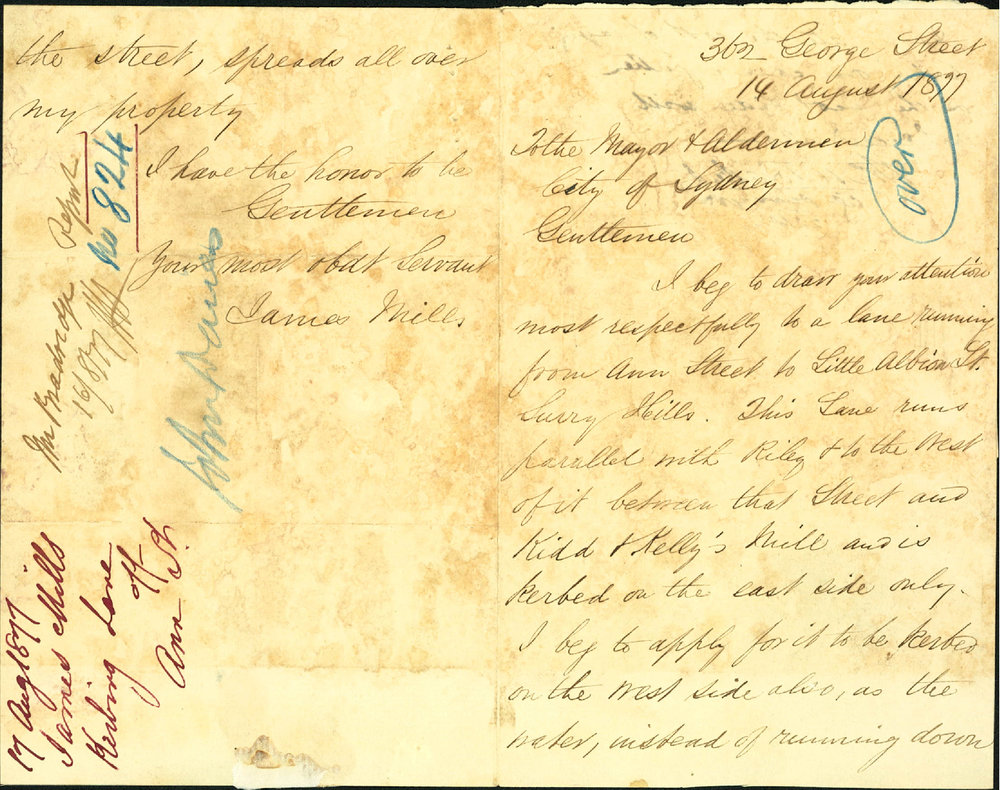 362 George Street
14 August 1877
To the Mayor & Aldermen
City of Sydney
Gentlemen
I beg to draw your attention
most respectfully to a lane running
from Ann Street to Little Albion St.
Surry Hills. This Lane runs
parallel with Riley & to the West
of it between that Street and
Kidd & Kelly's Mill and is
kerbed on the east side only.
I beg to apply for it to be kerbed
on the west side also, as the
water, instead of running down
the street, spreads all over
my property
I have the honor to be
Gentlemen
Your most obdt Servant
James Mills
No 824
Mr Bradridge Report
16/8/77
17 Aug 1877
James Mills
Kerbing Lane
off
Ann St.